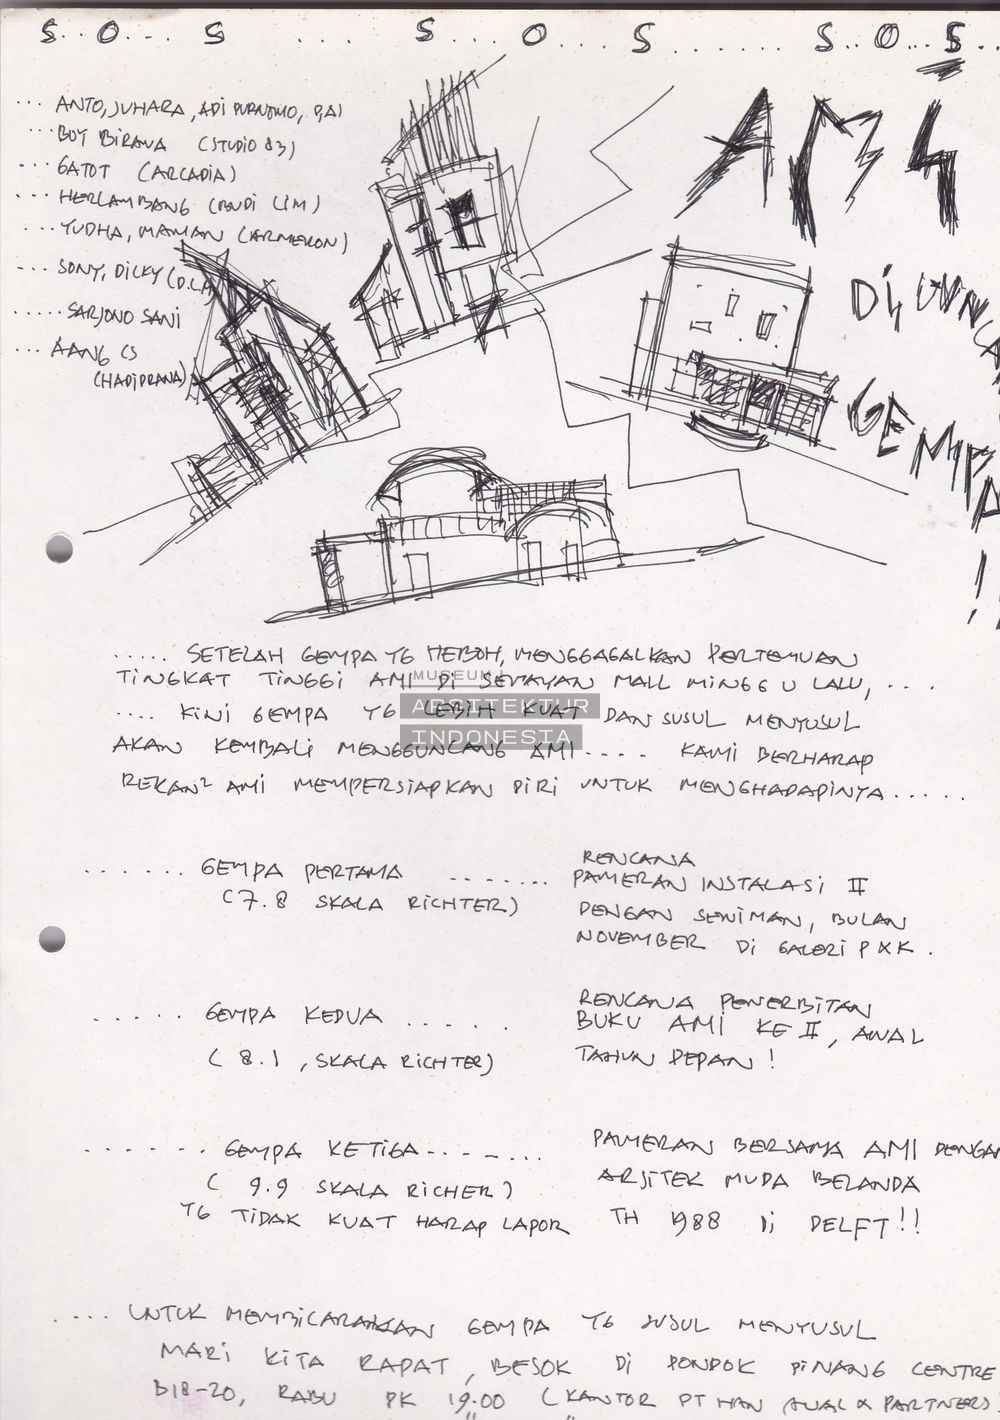 S..O...S ... S...S..O...S.......S..O...S..
... ANTO, JUHARA, ADI PURNOMO,
... BOY BIRAWA (STUDIO 83)
... GATOT (ARCADIA)
... HERLAMBANG (BUDI LIM)
... YUDHA, MAMAN (ARMEKON)
... SONY, DICKY (D.C.A)
..... SARJONO SANI
... AANG CS
(HADIPRANA)
AMI
DIGUNCA
GEMPA
!!
..... SETELAH GEMPA YG HEBOH, MENGGAGALKAN PERTEMUAN
TINGKAT TINGGI AMI DI SENAYAN MALL MINGGU LALU, ...
.... KINI GEMPA YG LEBIH KUAT DAN SUSUL MENYUSUL
AKAN KEMBALI MENGGUNCANG AMI .... KAMI BERHARAP
REKAN² AMI MEMPERSIAPKAN DIRI UNTUK MENGHADAPINYA .....
MUSEUM
ARSITEKTUR
INDONESIA
...... GEMPA PERTAMA .......
(7.8 SKALA RICHTER)
RENCANA
PAMERAN INSTALASI II
DENGAN SENIMAN, BULAN
NOVEMBER DI GALERI PXK.
..... GEMPA KEDUA ......
(8.1, SKALA RICHTER)
RENCANA PENERBITAN
BUKU AMI KE II, AWAL
TAHUN DEPAN!
....... GEMPA KETIGA .......
(9.9 SKALA RICHER)
YG TIDAK KUAT HARAP LAPOR
PAMERAN BERSAMA AMI DENGAN
ARSITEK MUDA BELANDA
TH 1988 DI DELFT!!
.... UNTUK MEMBICARAKAN GEMPA YG SUSUL MENYUSUL
MARI KITA RAPAT, BESOK DI PONDOK PINANG CENTRE
B18-20, RABU PK 19.00 (KANTOR PT HAN AWAL & PARTNERS).